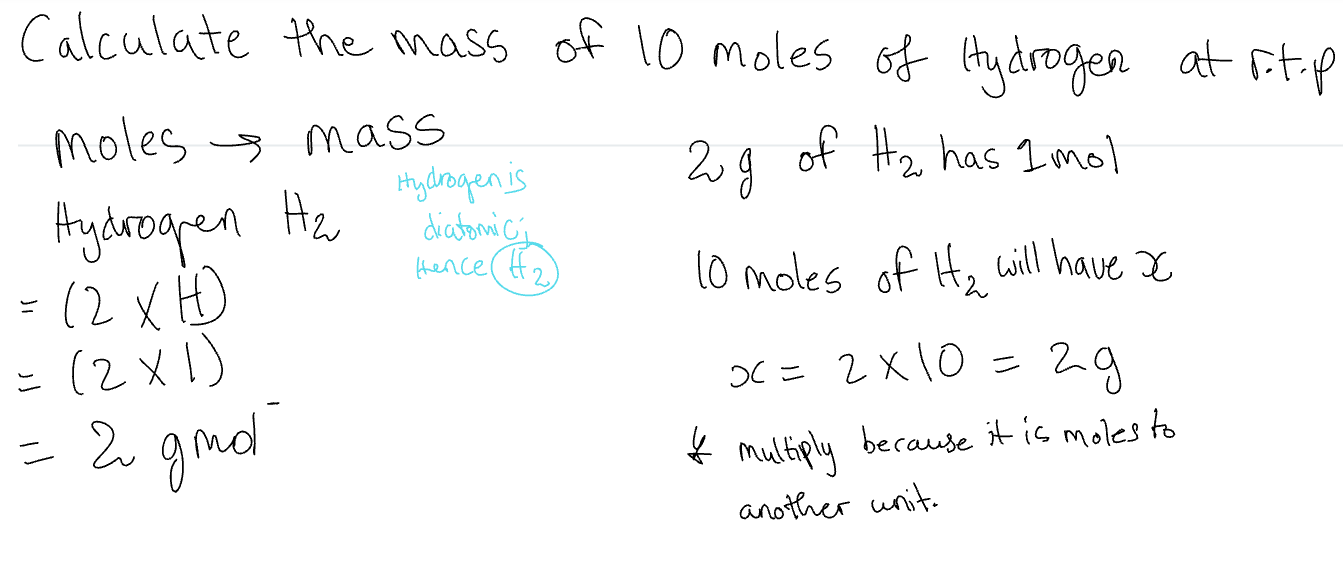 Calculate the mass of 10 moles of Hydrogen at r.t.p
moles → mass
Hydrogen H₂
= (2 × H)
= (2 × 1)
= 2 gmol⁻
Hydrogen is
diatomic;
Hence H₂
2g of H₂ has 1mol
10 moles of H₂ will have x
x = 2 × 10 = 2g
* multiply because it is moles to
another unit.